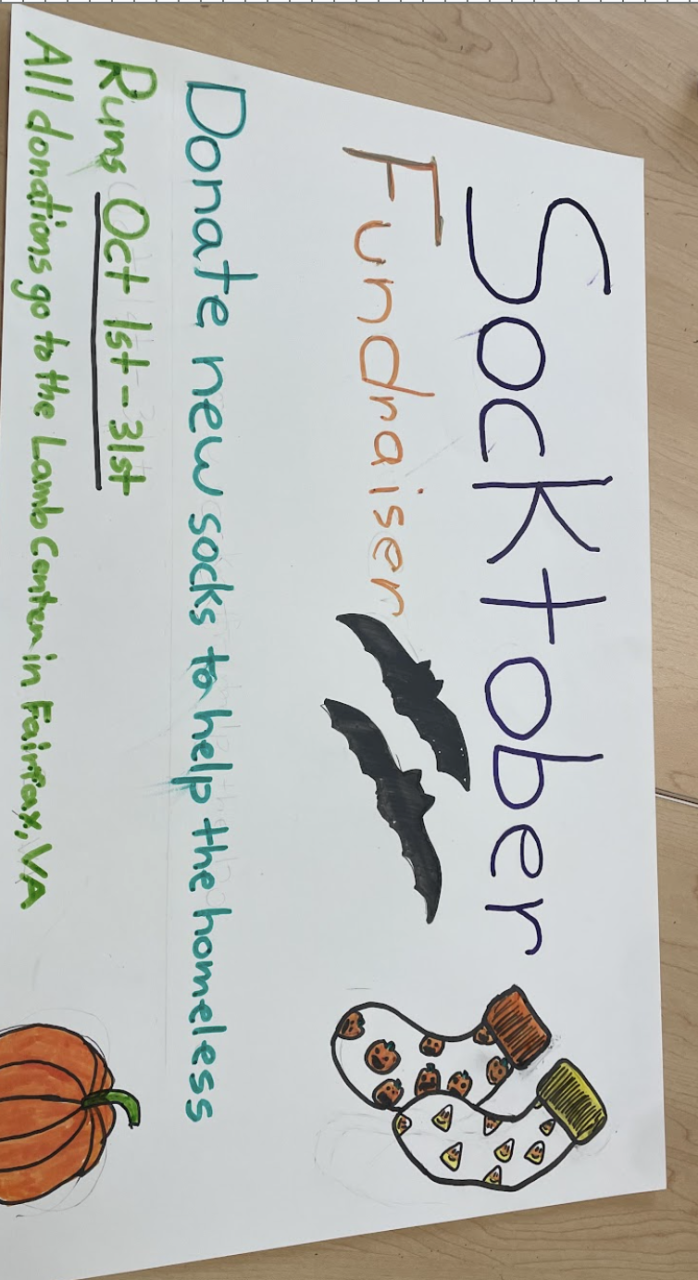 Socktober
Fundraiser
Donate new socks to help the homeless
Runs Oct 1st - 31st
All donations go to the Lamb Center in Fairfax, VA